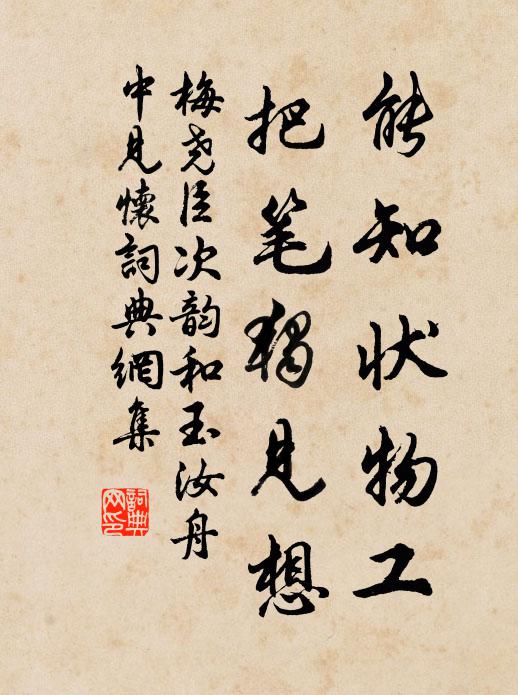 能知状物工
把笔独见想
梅尧臣次韵和玉汝舟
中見懷詞典網集
詞典
网印